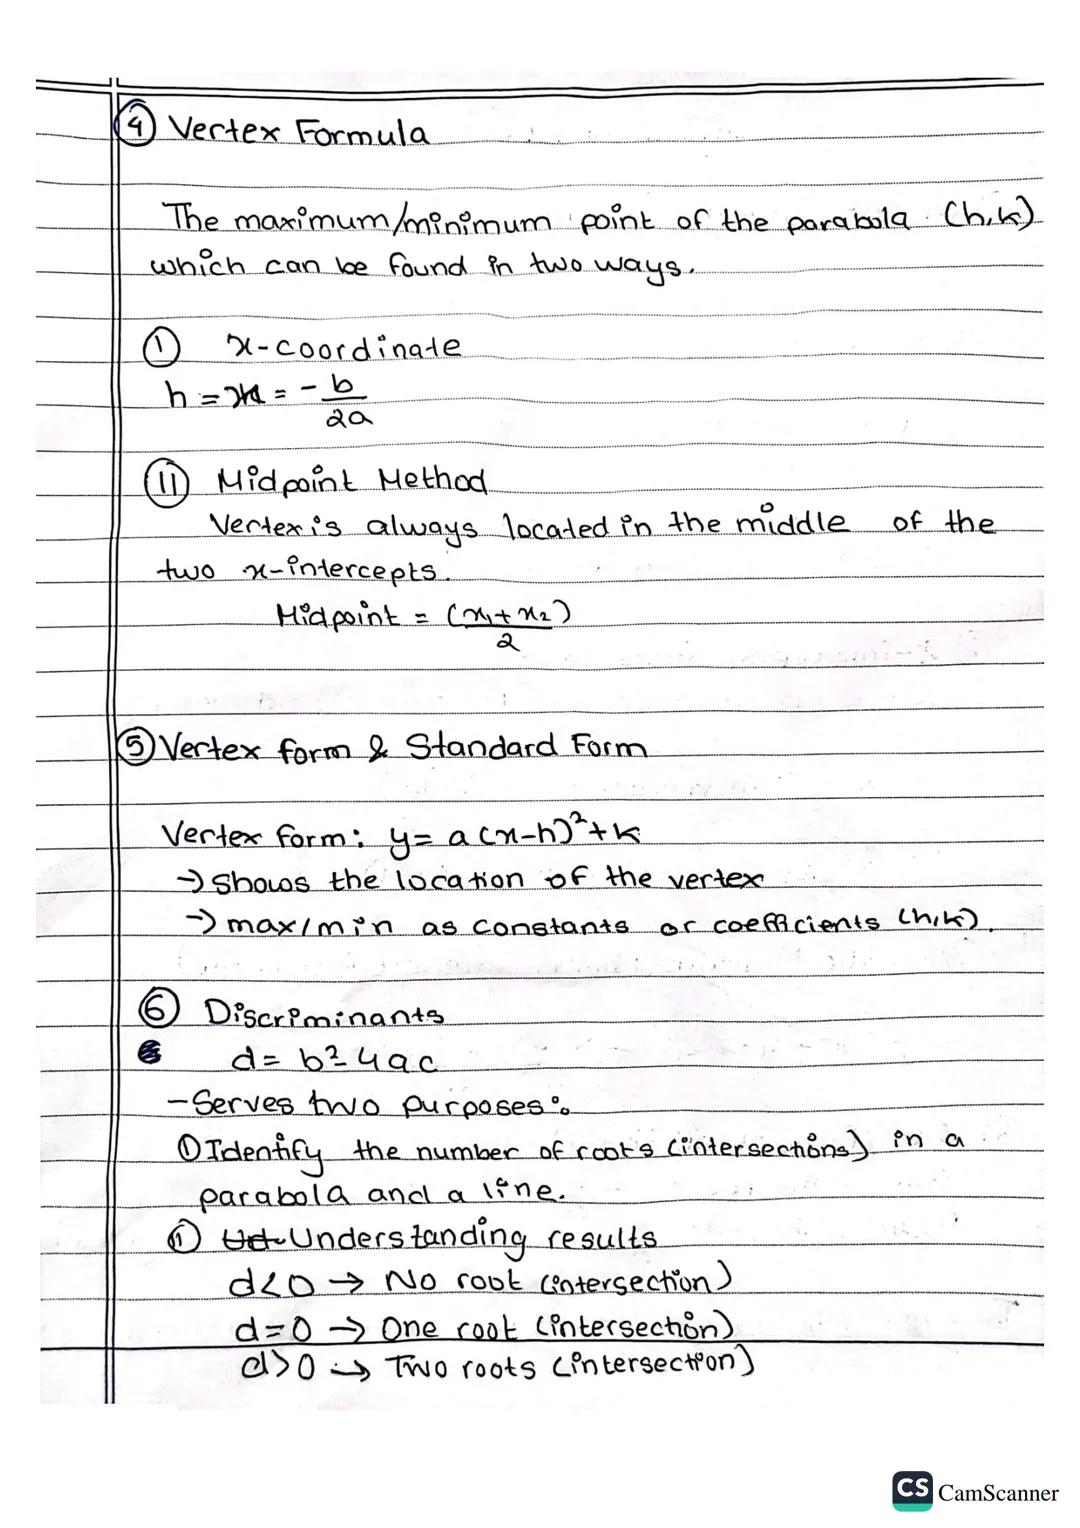 ④ Vertex Formula
The maximum/minimum point of the parabola (h,k)
which can be found in two ways.
Ⓘ x-coordinate
h = = - b
2a
Ⓘⓘ Midpoint Method
Vertex is always located in the middle of the
two x-intercepts.
Midpoint = (x₁+x₂)
2
⑤ Vertex form & Standard Form
Vertex form: y= a(x-h)²+k
→ Shows the location of the vertex
→ max/min as constants or coefficients (h,k).
⑥ Discriminants
d= b²-4ac
- Serves two purposes:
① Identify the number of roots (intersections) in a
parabola and a line.
ⓘⓘ Understanding results
d<0 → No root (intersection)
d=0 → One root (intersection)
d>0 → Two roots (intersection)
CS CamScanner